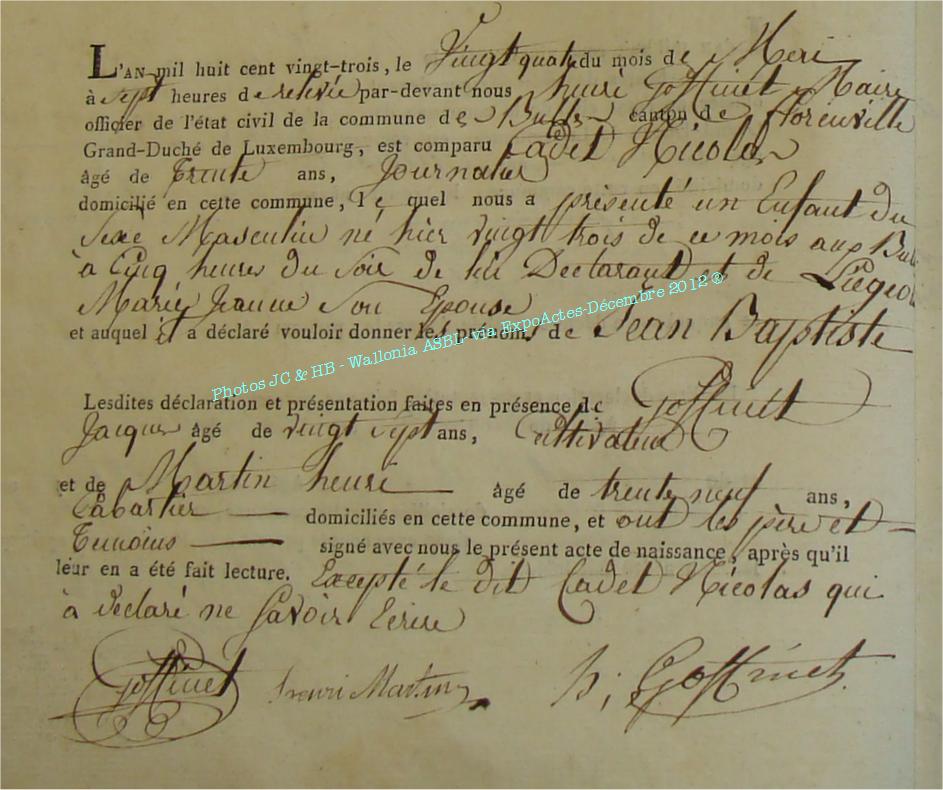 L'AN mil huit cent vingt-trois, le Vingt quatre du mois de Meri
à Sept heures de relevée par-devant nous henri Goffinet Maire
officier de l'état civil de la commune de Bulles canton de florenville
Grand-Duché de Luxembourg, est comparu Cadet Nicolas
âgé de Trente ans, Journalier
domicilié en cette commune, le quel nous a présenté un Enfant du
Sexe Masculin né hier vingt trois de ce mois aux Bul
à Cinq heures du Soir de lui Declarant et de Liégeois
Marie Jeanne Son Epouse
et auquel il a déclaré vouloir donner les prénoms de Jean Baptiste
Photos JC & HB - Wallonia ASBL via ExpoActes-Décembre 2012 ®
Lesdites déclaration et présentation faites en présence de Goffinet
Jacques âgé de vingt Sept ans, Cultivateur
et de Martin henri âgé de trente neuf ans,
Cabartier domiciliés en cette commune, et ont les père et
Temoins signé avec nous le présent acte de naissance, après qu'il
leur en a été fait lecture. Excepté le dit Cadet Nicolas qui
à declaré ne Savoir Ecrire
Goffinet henri Martin h; Goffinet.